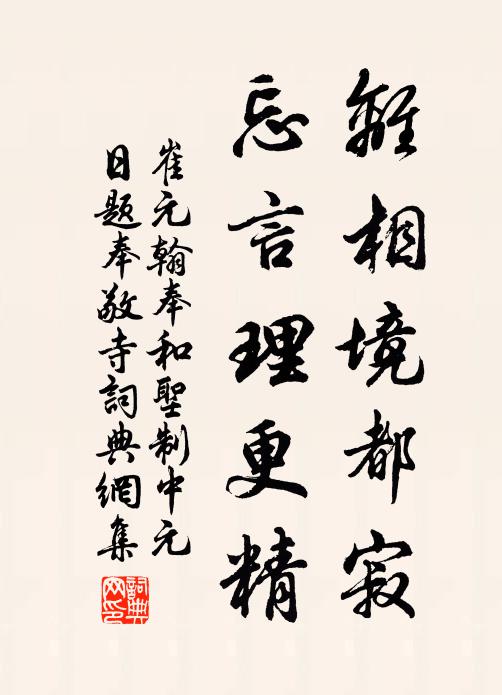 離相境都寂
忘言理更精
崔元翰奉和聖制中元
日題奉敬寺詞典網集
詞典網印